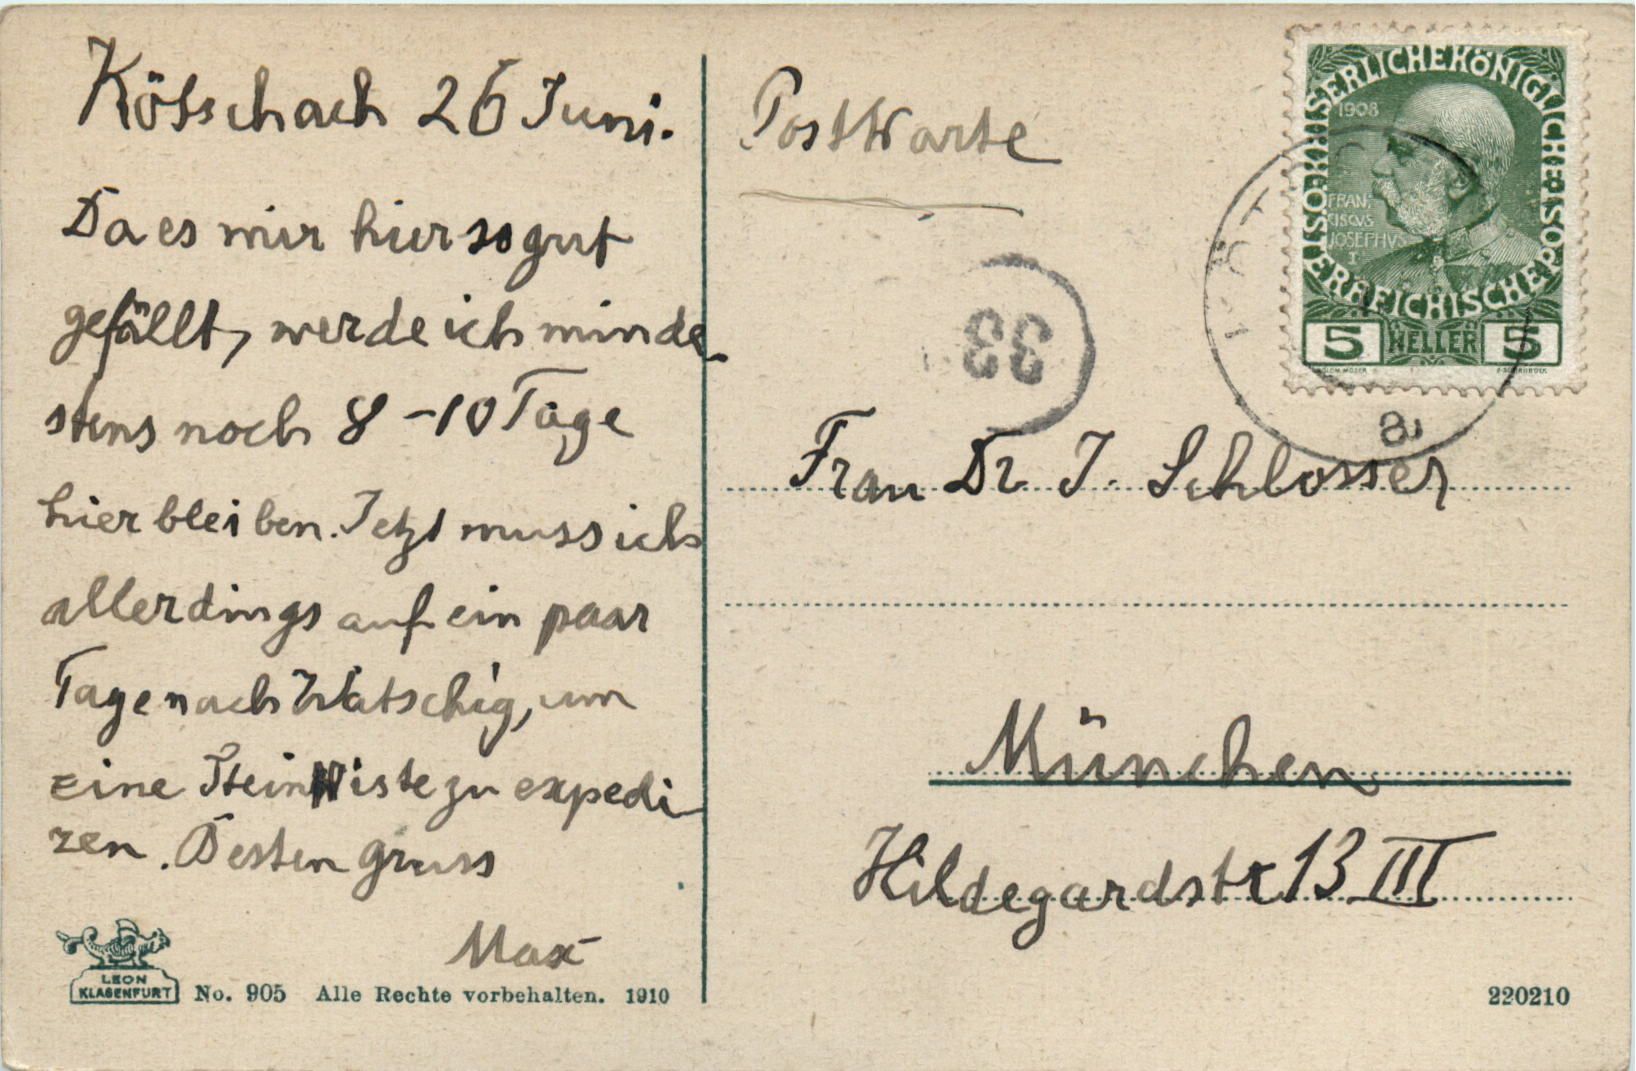 Kötschach 26 Juni.
Da es mir hier so gut
gefällt, werde ich minde-
stens noch 8-10 Tage
hier bleiben. Jetzt muss ich
allerdings auf ein paar
Tage nach Watschig, um
eine Steinkiste zu expedi-
ren. Besten Gruss
Max
LEON
KLAGENFURT
No. 905 Alle Rechte vorbehalten. 1910
Postkarte
KAISERLICHE KÖNIGLICHE ÖSTERREICHISCHE POST
1908
FRAN,
CISCVS
JOSEPHVS
I
5 HELLER 5
KÖT
a
33
Frau Dr. J. Schlosser
München
Hildegardstr 13 III
220210